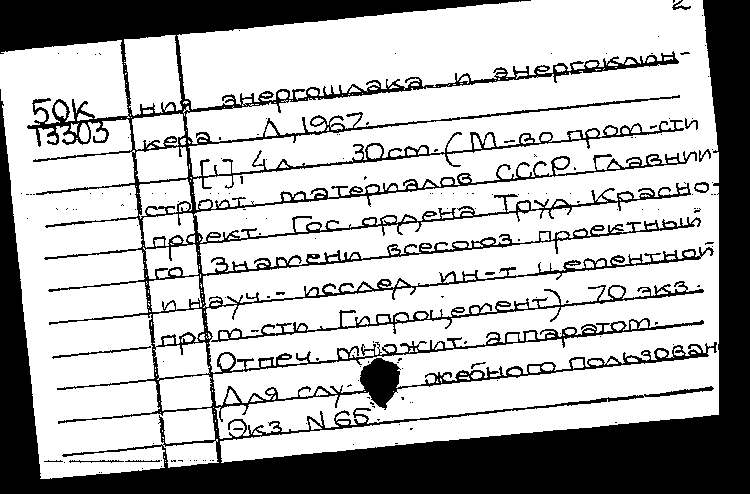 2
50К
Т3303
ния энергошлака и энергоклин-
кера. Л., 1967.
[1], 4 л. 30 cm. (М-во пром-сти
строит. материалов СССР. Главнии-
проект. Гос. ордена Труд. Красно-
го Знамени всесоюз. проектный
и науч.- исслед. ин-т цементной
пром-сти. Гипроцемент). 70 экз.
Отпеч. множит. аппаратом.
Для слу- жебного пользован
Экз. N 65.